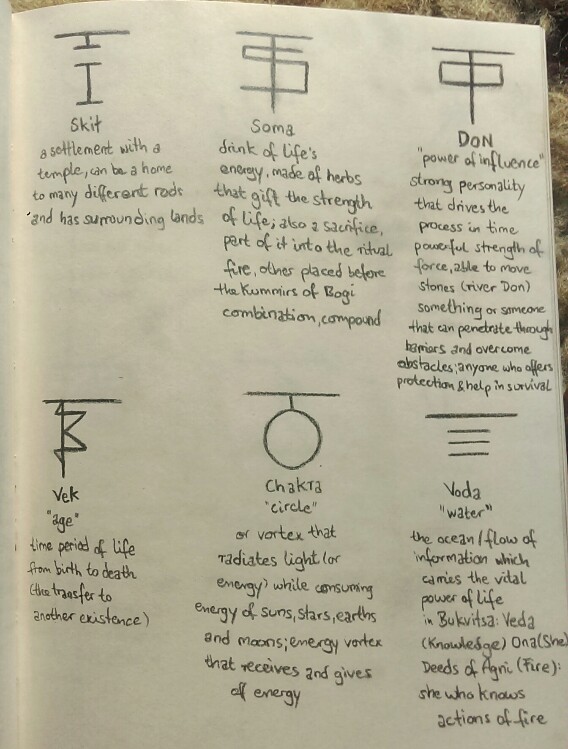 Skit
a settlement with a
temple, can be a home
to many different rods
and has surrounding lands
Soma
drink of life's
energy, made of herbs
that gift the strength
of life; also a sacrifice,
part of it into the ritual
fire, other placed before
the Kummirs of Bogi
combination, compound
DON
"power of influence"
strong personality
that drives the
process in time
powerful strength of
force, able to move
stones (river Don)
something or someone
that can penetrate through
barriers and overcome
obstacles; anyone who offers
protection & help in survival
Vek
"age"
time period of life
from birth to death
(the transfer to
another existence)
Chakra
"circle"
or vortex that
radiates light (or
energy) while consuming
energy of suns, stars, earths
and moons; energy vortex
that receives and gives
off energy
Voda
"water"
the ocean/flow of
information which
carries the vital
power of life
in Bukvitsa: Veda
(Knowledge) Ona (She)
Deeds of Agni (Fire):
she who knows
actions of fire